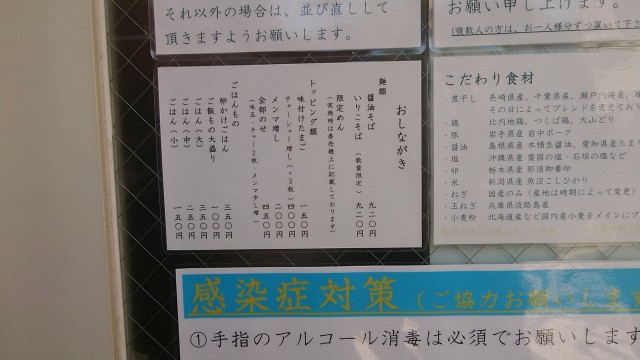 それ以外の場合は、並び直しして
頂きますようお願いします。
お願い申し上げます。
(複数人の方は、お一人様分ずつ置いて下さ
おしながき
麺類
醤油そば 九二〇円
いりこそば（数量限定） 九二〇円
限定めん
（実施時は券売機上に記載しております）
トッピング類
味付けたまご 一五〇円
チャーシュー増し（+3枚） 四〇〇円
メンマ増し 二〇〇円
全部のせ 四五〇円
（味玉・チャー2枚・メンマ少し増）
ごはんもの
卵かけごはん 三五〇円
ご飯もの大盛り 一〇〇円
ごはん（大） 三五〇円
ごはん（中） 二五〇円
ごはん（小） 一五〇円
こだわり食材
・煮干し 長崎県産、千葉県産、瀬戸内海産、
その日によってブレンドを変えており
・鶏 比内地鶏、つくば鶏、大山どり
・豚 岩手県産 岩中ポーク
・醤油 島根県産 木桶生醤油、愛知県産たま
・塩 沖縄県産 粟国の塩・石垣の塩など
・卵 栃木県産 那須御養卵
・米 新潟県産 魚沼こしひかり
・ねぎ 国産のみ（産地は時期によって変更）
・玉ねぎ 兵庫県淡路島産
・小麦粉 北海道産など国内産小麦をメインにブ
感染症対策（ご協力お願いしま
①手指のアルコール消毒は必須でお願いします